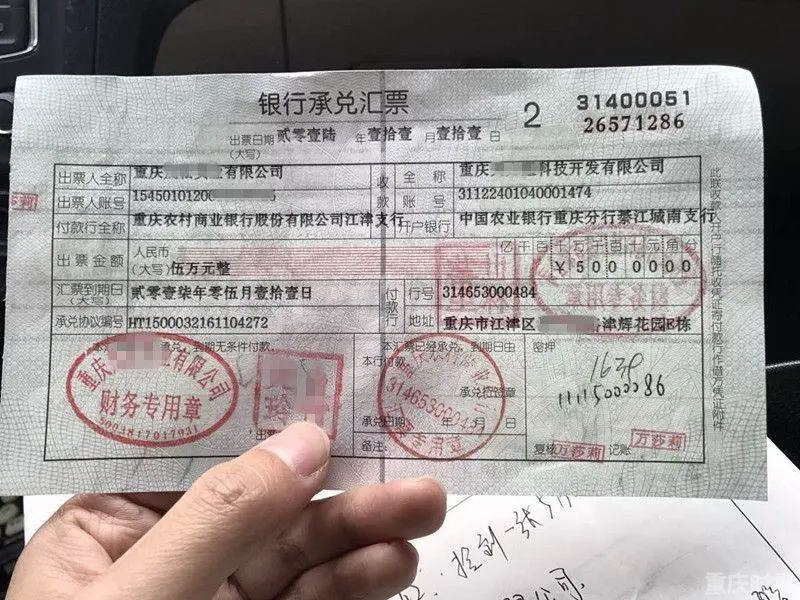 银行承兑汇票
2
31400051
26571286
出票日期 贰零壹陆 年壹拾壹 月壹拾壹 日
(大写)
出票人全称 重庆 有限公司
收 全 称 重庆 科技开发有限公司
出票人账号 15450101200
账号 31122401040001474
付款行全称 重庆农村商业银行股份有限公司江津支行
开户银行 中国农业银行重庆分行綦江城南支行
出票金额 人民币
(大写) 伍万元整
亿 千 百 十 万 千 百 十 元 角 分
¥ 5 0 0 0 0 0 0
汇票到期日 贰零壹柒年零伍月壹拾壹日
(大写)
付款行 行号 314653000484
承兑协议编号 HT1500032161104272
地址 重庆市江津区 津辉花园E栋
到期无条件付款
本汇票已经承兑,到期日由
本行付款
密押
1639
承兑行签章
承兑日期 年 月 日
备注:
复核 万莎莉 记账 万莎莉
重庆 有限公司
财务专用章
5003817017931
财务专用章
莎莉
捡到一张5
公司
重庆时